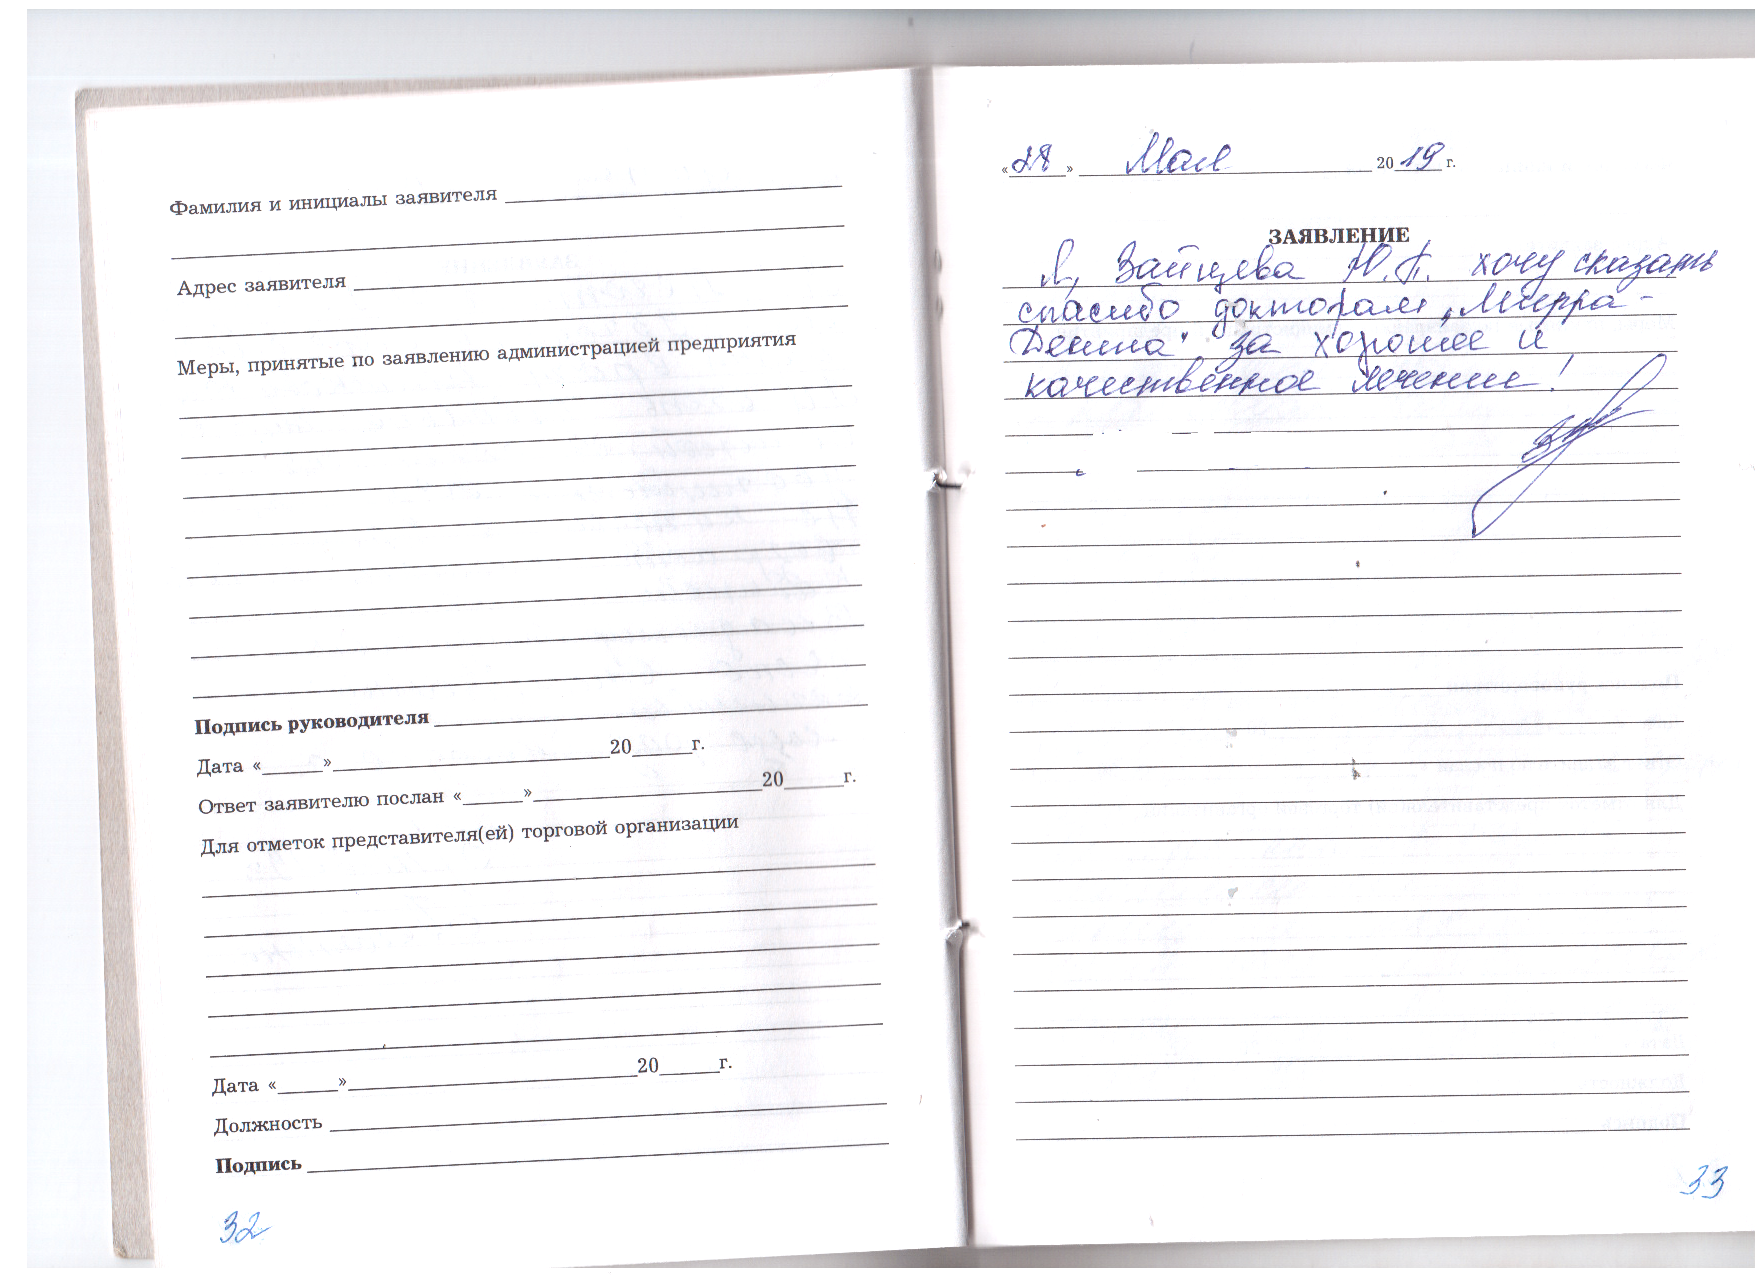 Фамилия и инициалы заявителя
Адрес заявителя
Меры, принятые по заявлению администрацией предприятия
Подпись руководителя
Дата «______»______20______г.
Ответ заявителю послан «______»______20______г.
Для отметок представителя(ей) торговой организации
Дата «______»______20______г.
Должность
Подпись
32
«28» Мая 2019 г.
ЗАЯВЛЕНИЕ
Я, Зайцева Ю.П. хочу сказать
спасибо докторам „Мирра-
Дента" за хорошее и
качественное лечение!
33